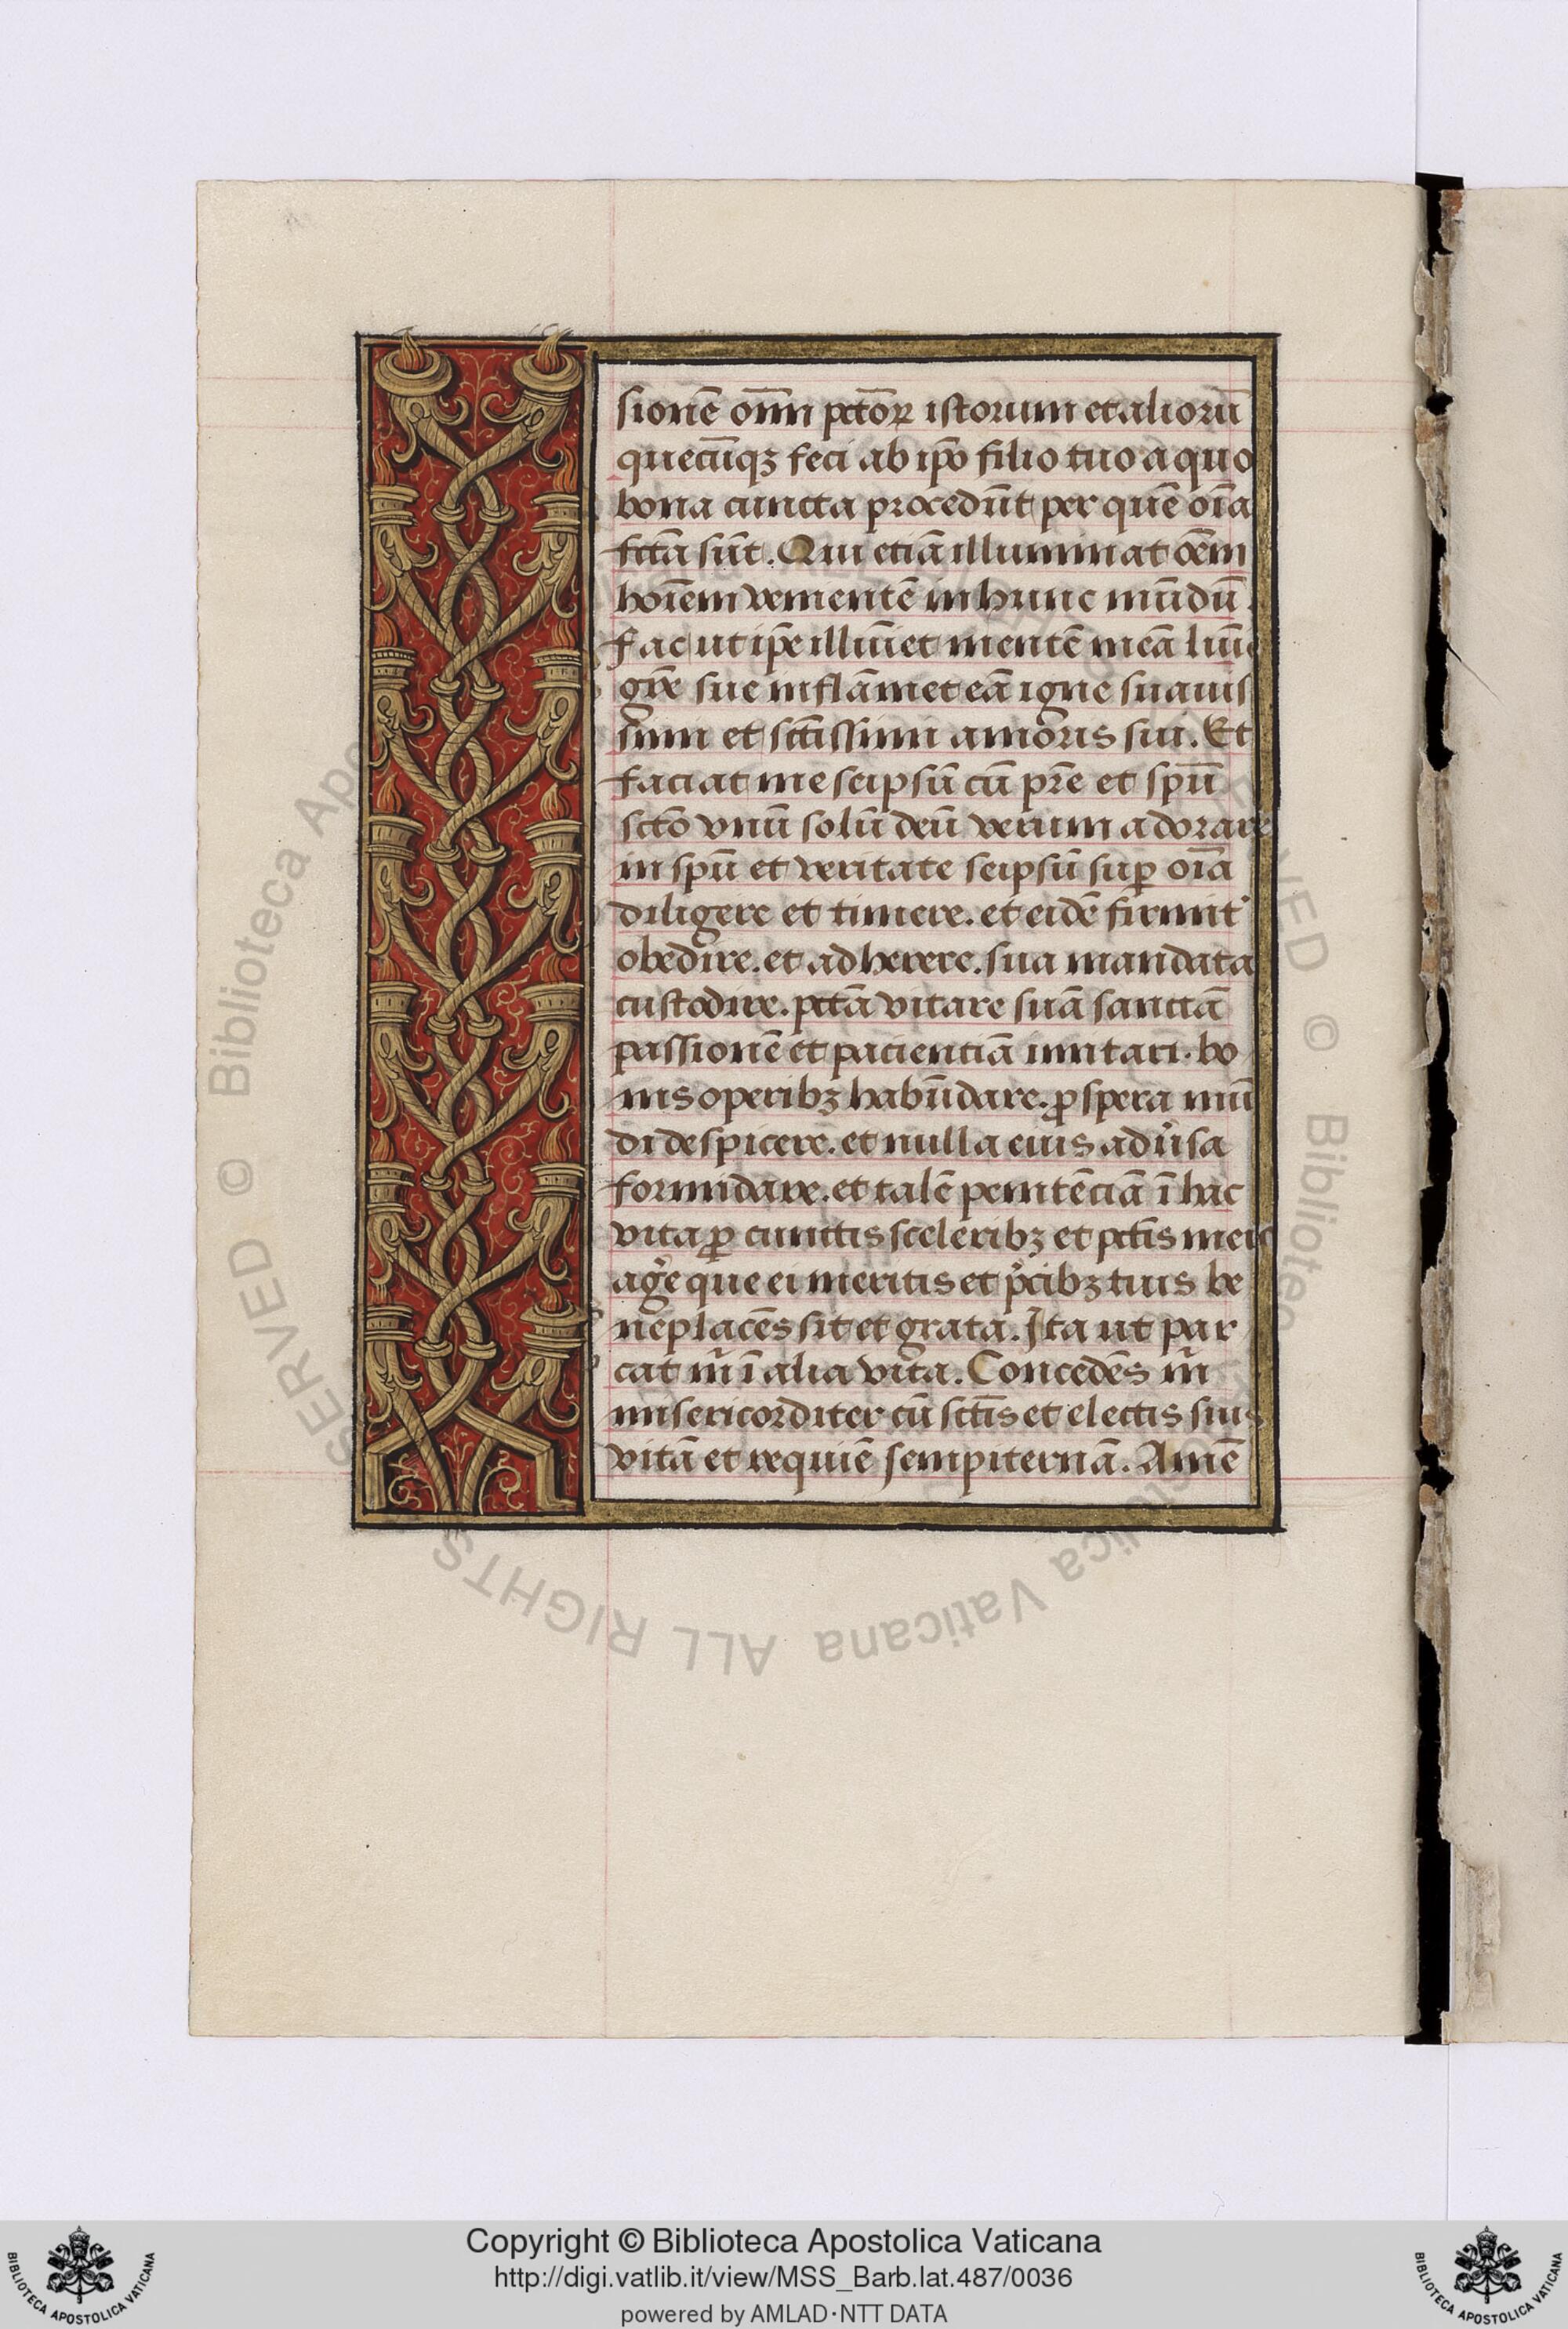 sionē om̄n pctōꝝ istorum et aliorū
quecūqꝫ feci ab ip̄o filio tuo a quo
bona cuncta procedūt per quē oīa
fctā sūt. Qui etiā illuminat oēm
hoīem venientē in hunc mūdū.
Fac ut ip̄e illūiet mentē meā
gr̄e sue inflāmet eā igne suauis
simi et sctīssimi amoris sui. Et
faciat me seipsū cū pr̄e et spū
sctō vnū solū deū verum adorare
in spū et veritate seipsū suꝑ oīa
diligere et timere. et eidē firmit᾽
obedire. et adherere. sua mandata
custodire. pctā vitare suā sanctā
passionē et pacienciā imitari. bo
nis operibꝫ habūdare. ꝓspera mū
di despicere. et nulla eius adũsa
formidare. et talē penitēciā ī hac
vita ꝓ cunctis sceleribꝫ et pctīs meis
agē que ei meritis et p̃cibꝫ tuis be
neplacēs sit et grata. Ita ut par
cat m̃ ī alia vita. Concedēs m̃
misericorditer cū sctīs et electis suis
vitā et requiē sempiternā. Amē
© Biblioteca Apostolica Vaticana ALL RIGHTS RESERVED
Copyright © Biblioteca Apostolica Vaticana
http://digi.vatlib.it/view/MSS_Barb.lat.487/0036
powered by AMLAD·NTT DATA
BIBLIOTECA APOSTOLICA VATICANA
BIBLIOTECA APOSTOLICA VATICANA